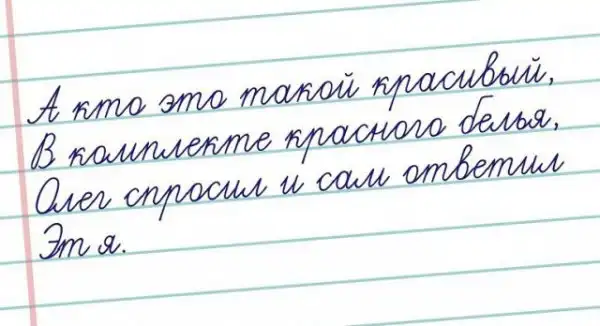 А кто это такой красивый,
В комплекте красного белья,
Олег спросил и сам ответил
Эт я.